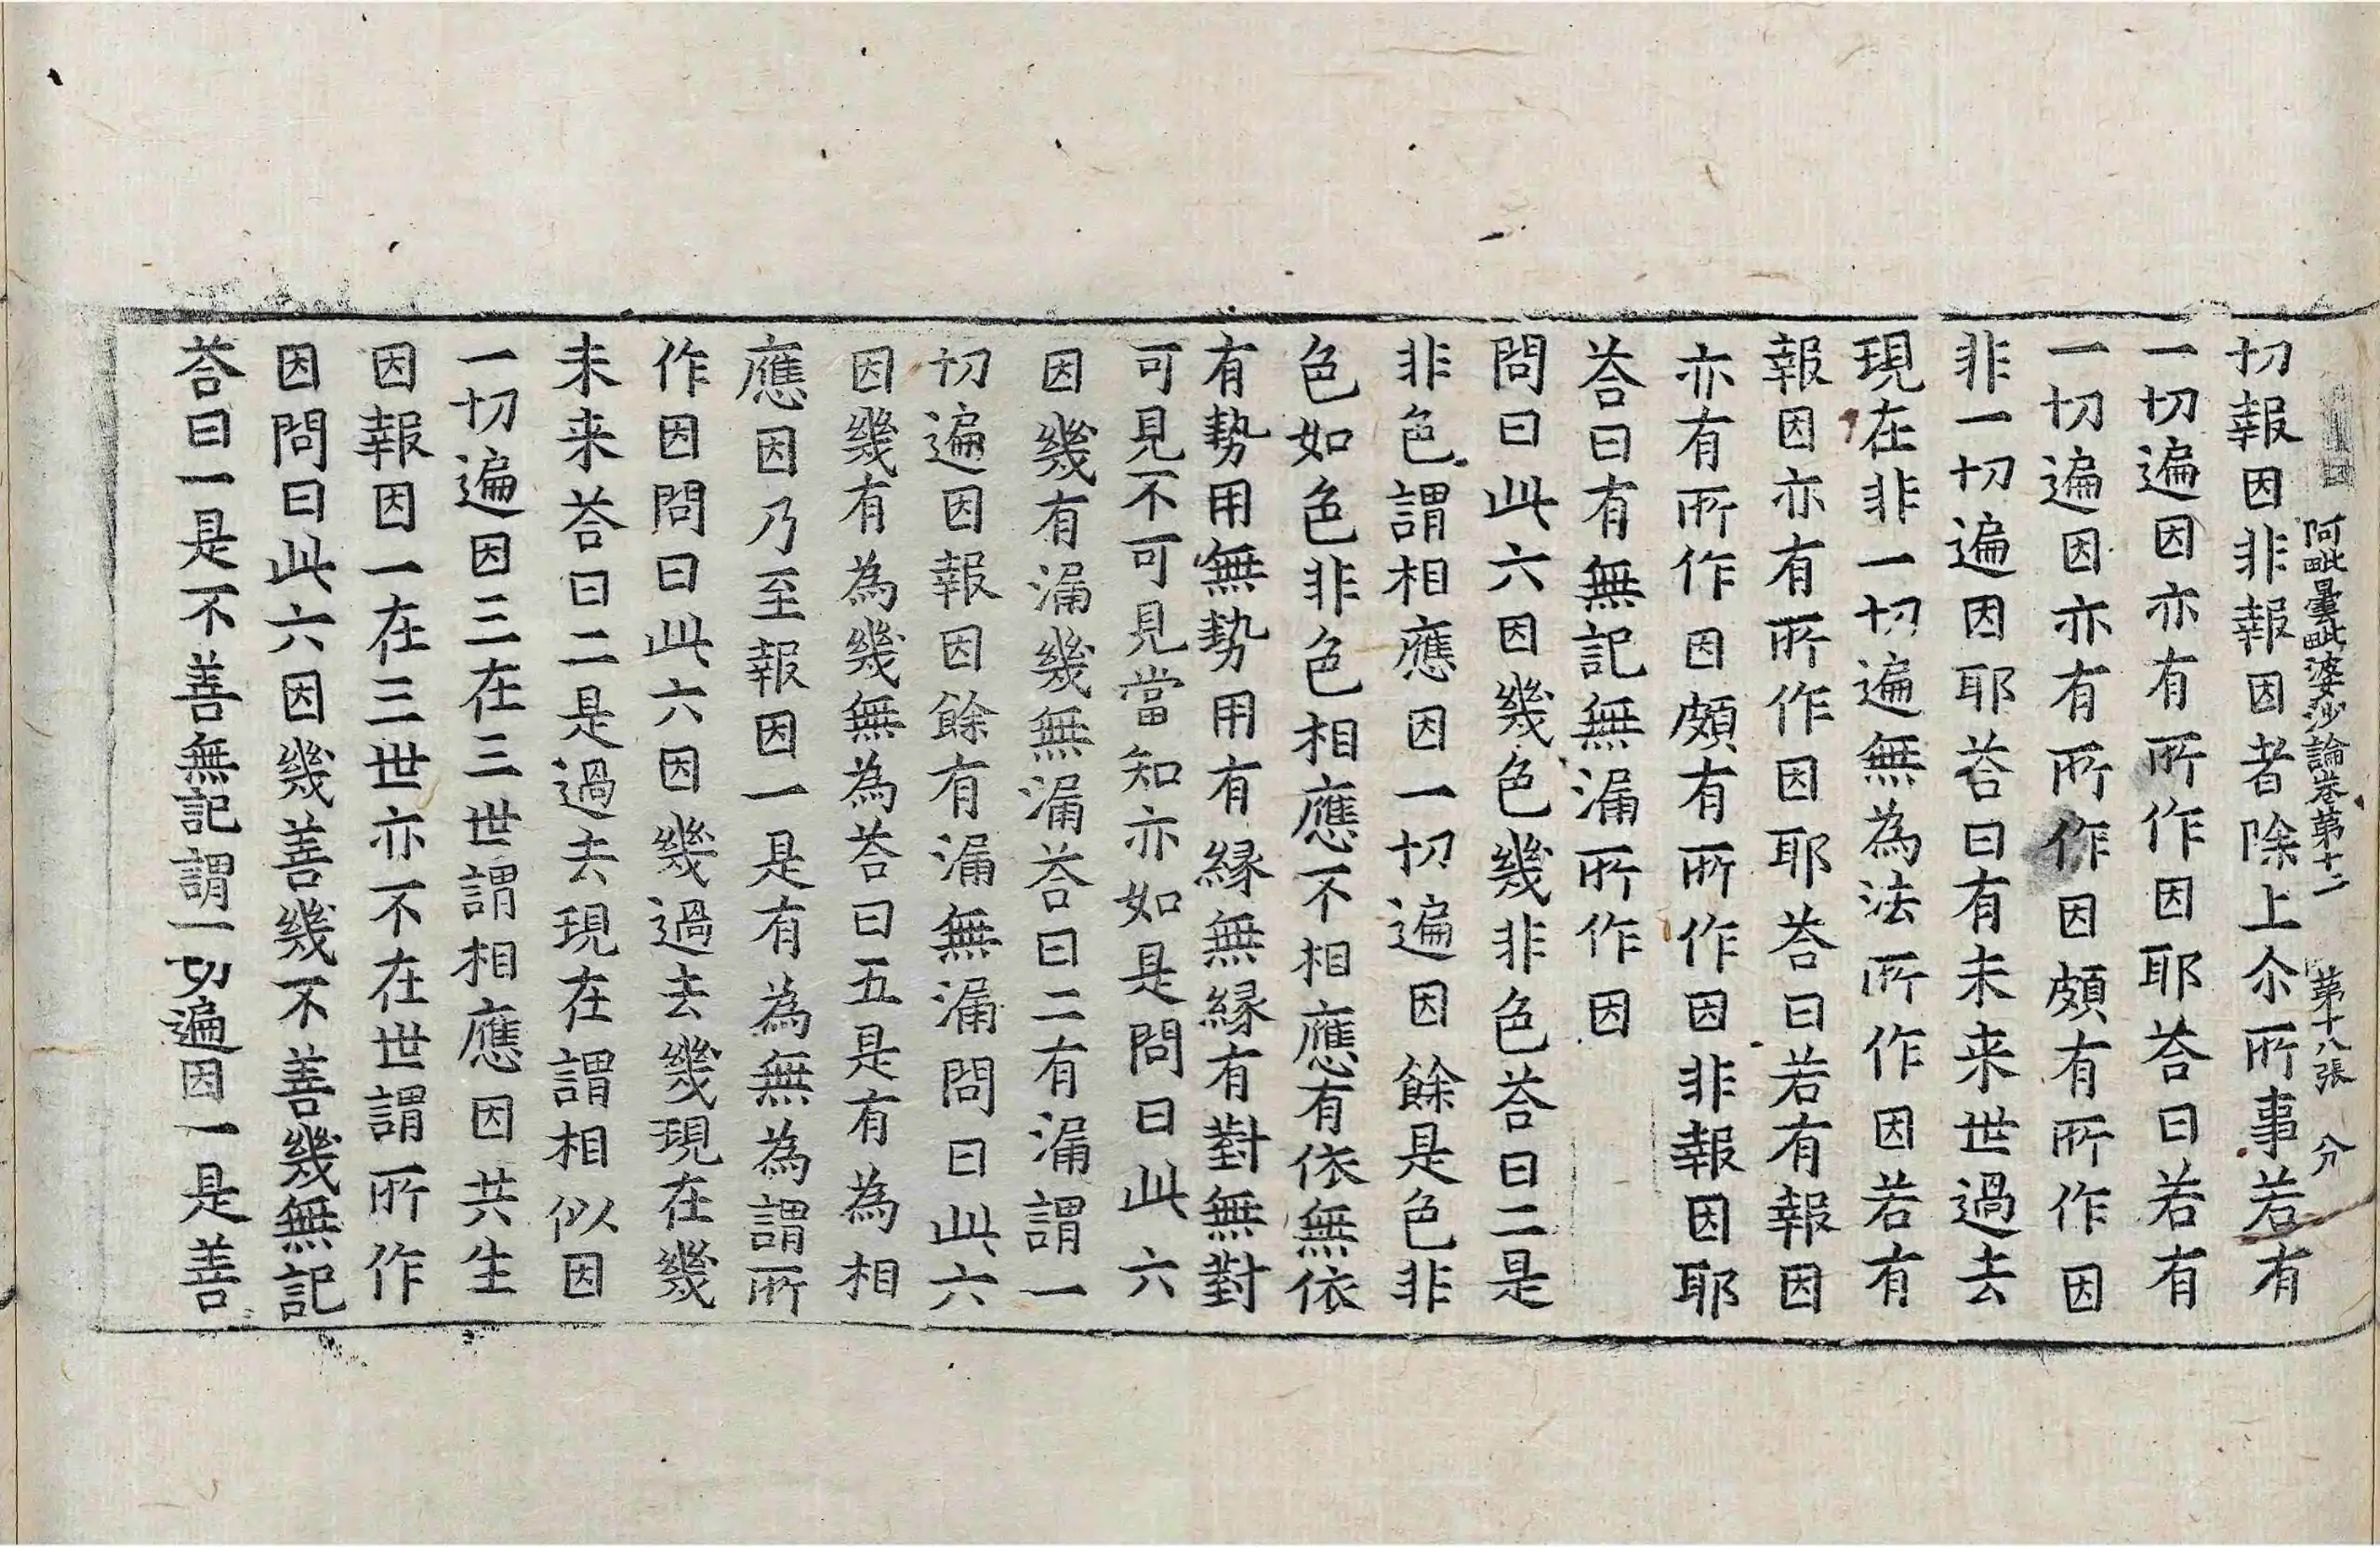 阿毗曇毗婆沙論卷第十二 第十八張 分
切報因非報因者除上尒所事若有
一切遍因亦有所作因耶荅曰若有
一切遍因亦有所作因頗有所作因
非一切遍因耶荅曰有未来世過去
現在非一切遍無為法所作因若有
報因亦有所作因耶荅曰若有報因
亦有所作因頗有所作因非報因耶
荅曰有無記無漏所作因
問曰此六因幾色幾非色荅曰二是
非色謂相應因一切遍因餘是色非
色如色非色相應不相應有依無依
有勢用無勢用有緣無緣有對無對
可見不可見當知亦如是問曰此六
因幾有漏幾無漏荅曰二有漏謂一
切遍因報因餘有漏無漏問曰此六
因幾有為幾無為荅曰五是有為相
應因乃至報因一是有為無為謂所
作因問曰此六因幾過去幾現在幾
未来荅曰二是過去現在謂相似因
一切遍因三在三世謂相應因共生
因報因一在三世亦不在世謂所作
因問曰此六因幾善幾不善幾無記
荅曰一是不善無記謂一切遍因一是善